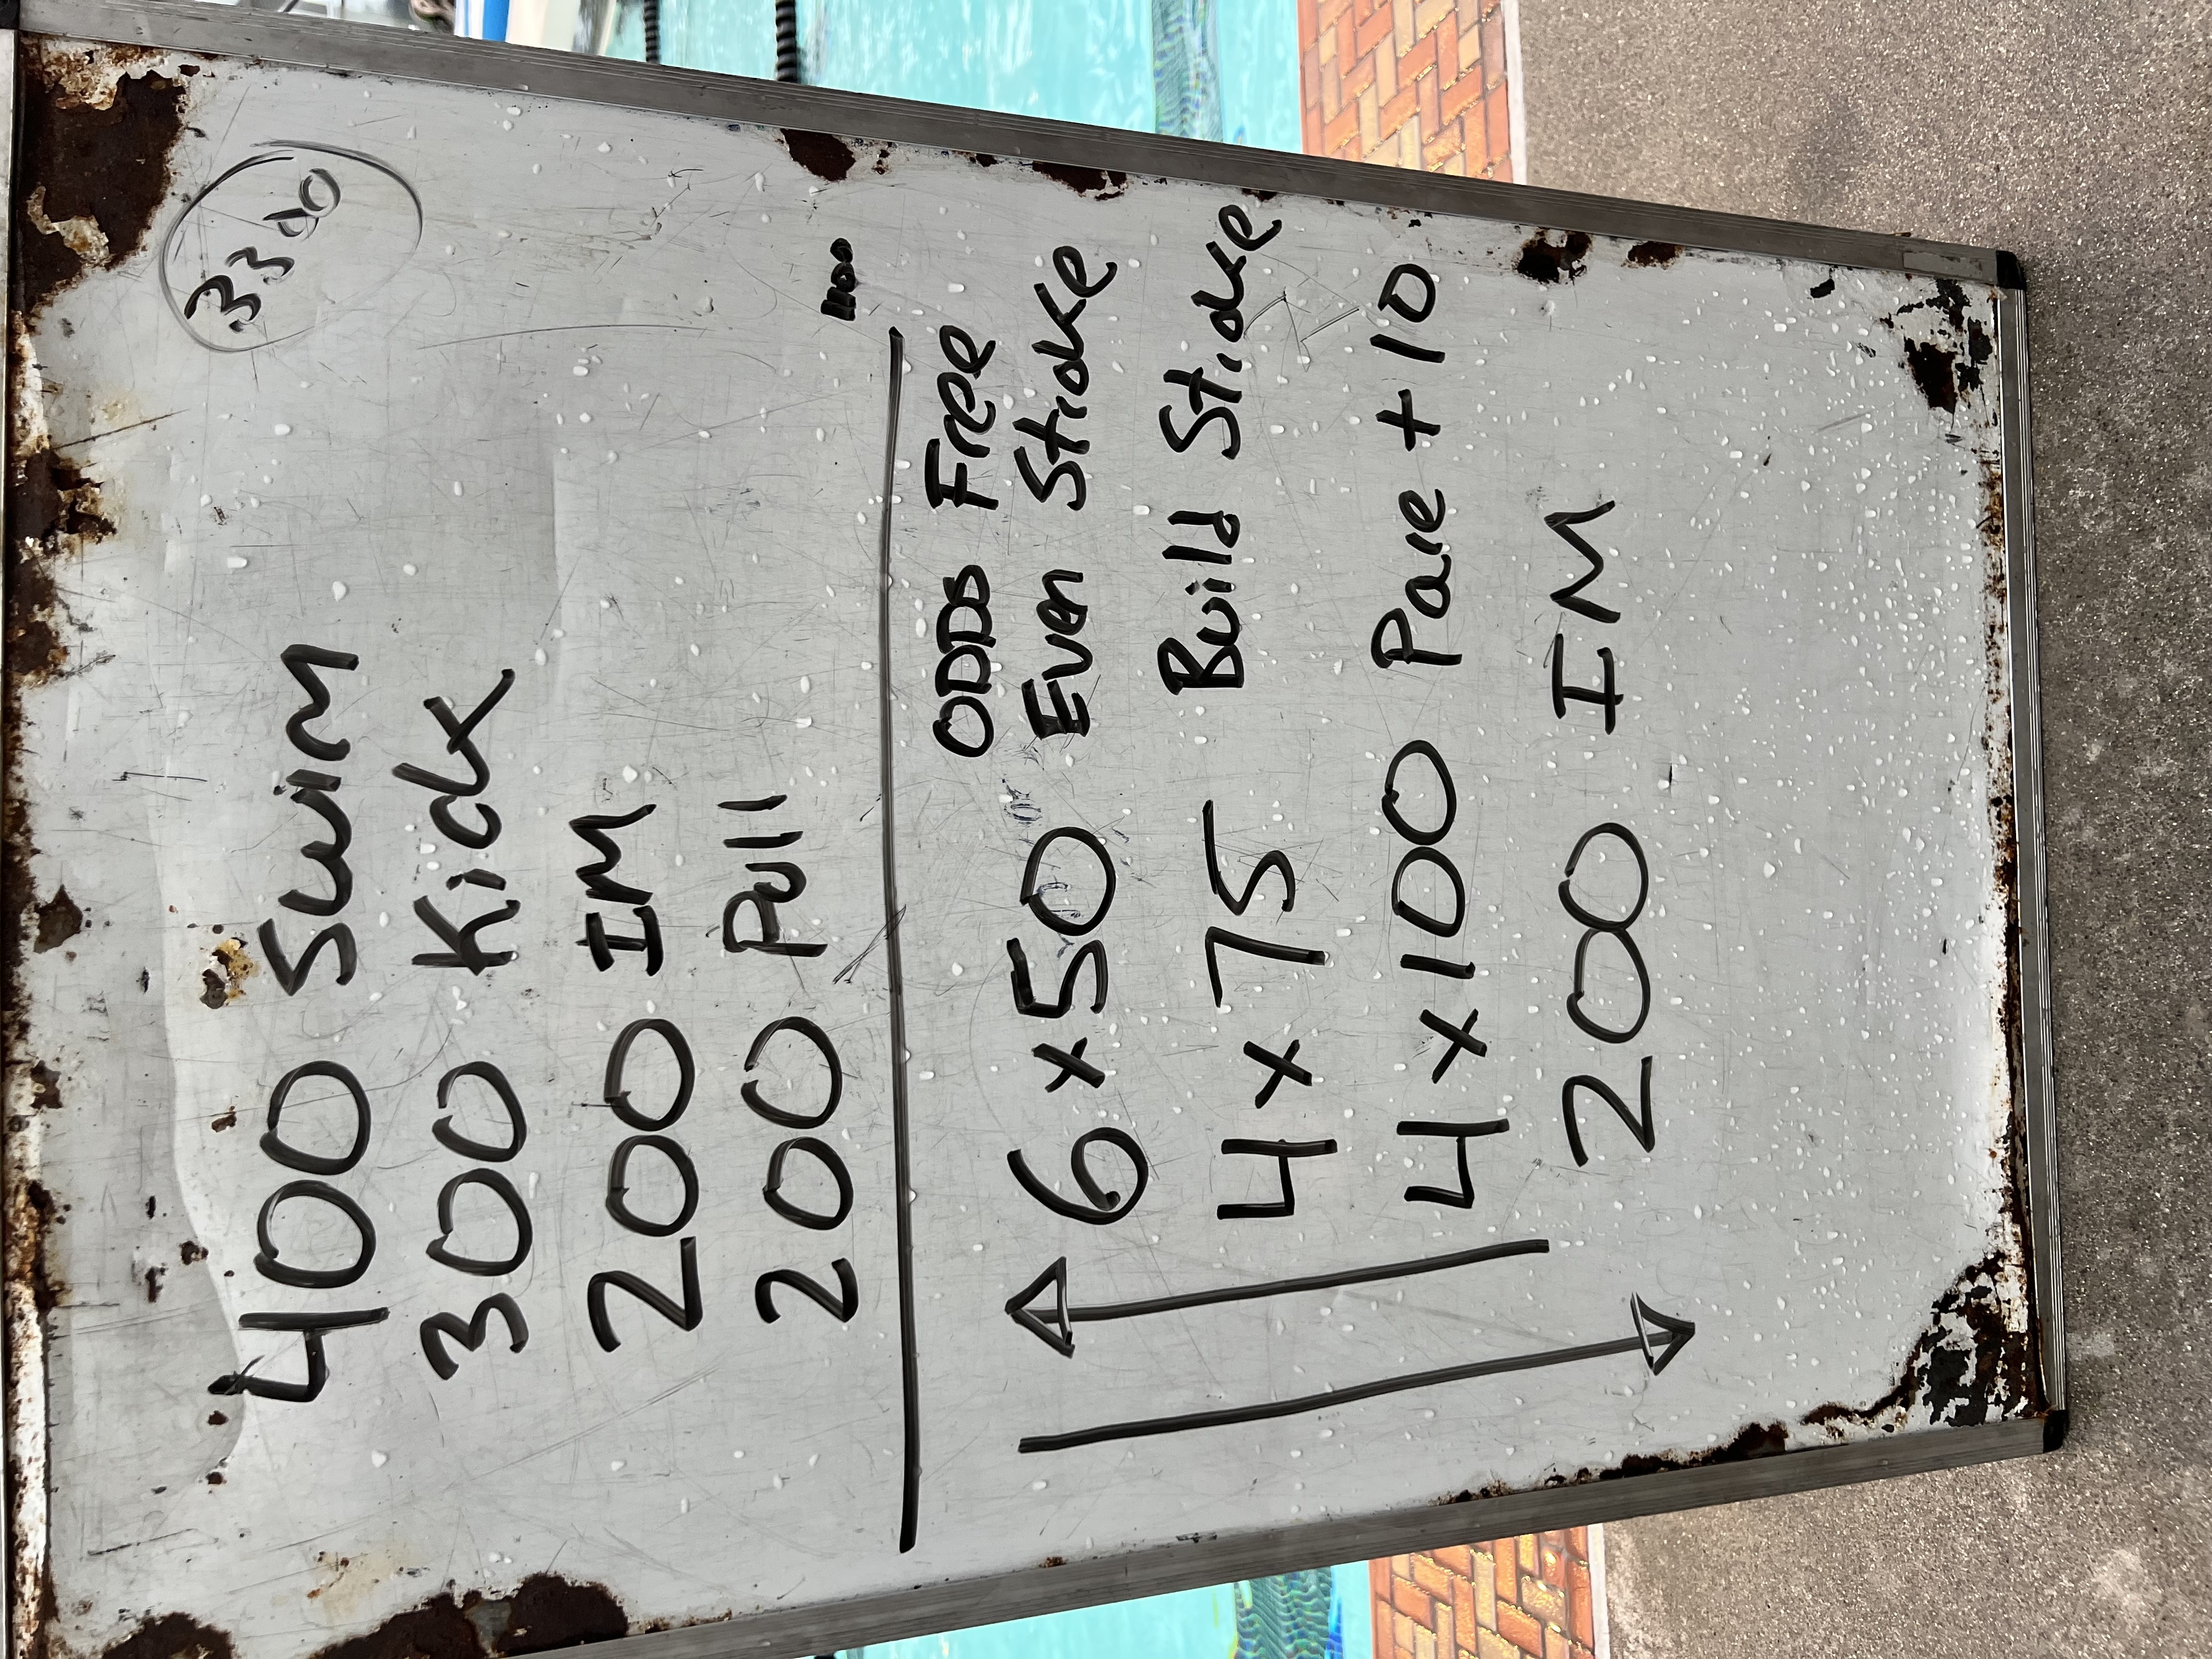 3300
400 Swim
300 Kick
200 IM
200 Pull
1100
ODDS Free
6 x 50 Even Stroke
4 x 75 Build Stroke
4 x 100 Pace + 10
200 IM